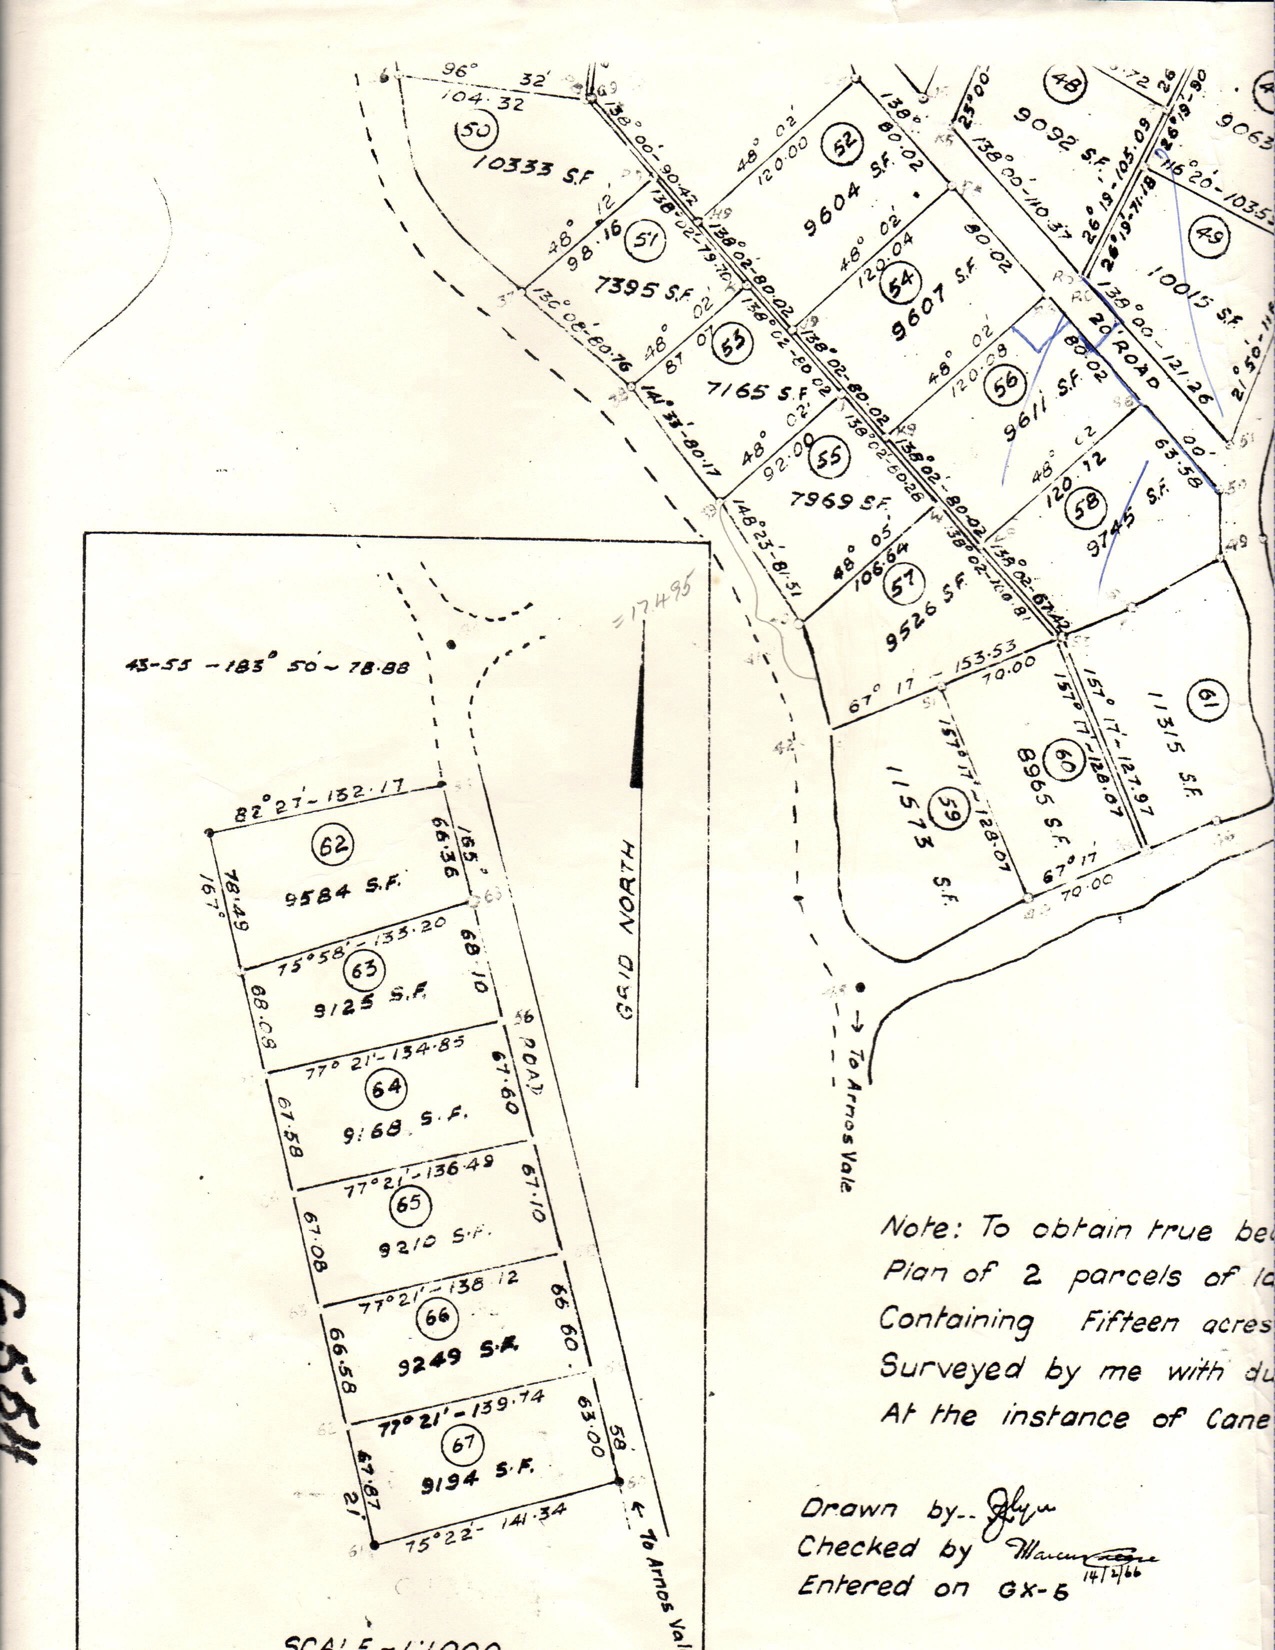 96° 32'
104.32
50
10333 S.F.
138° 00'-90.42
48° 12'
98.16
51
7395 S.F.
138°02-79.70
138°02'-80.02
136°08'-80.76
48° 02'
120.00
52
9604 S.F.
138°
80.02
48° 02'
120.04
54
9607 S.F.
80.02
48° 02'
87 07
53
7165 S.F.
138°02-80 02
138°02-80.02
141° 33'-80.17
48° 02'
92.00
55
7969 S.F.
138°02'-80.26
138°02'-80.02
48° 02'
120.08
56
9611 S.F.
80.02
48° 02
120.12
58
9745 S.F.
63.58
00'
148°23'-81.51
48° 05
106.64
57
9526 S.F.
138°02-67.42
67° 17' - 153.53
70.00
157°17'-128.07
59
11573 S.F.
60
8965 S.F.
157° 17'-128.07
157° 17'-127.97
61
11315 S.F.
67° 17'
70.00
25°00-
138°00'-110.37
48
9092 S.F.
26° 19'-105.09
26°19'-71.18
26°19'-90
116°20'-103.5
49
10015 S.F.
9063
138°00'-121.26
20' ROAD
21° 50'
49
→ To Arnos Vale
43-55 - 183° 50' - 78.88
= 17.495
GRID NORTH
82° 27' - 132.17
62
9584 S.F.
78.49
167°
165°
66.36
75° 58' - 133.20
63
9125 S.F.
68.08
68.10
56
ROAD
77° 21' - 134.85
64
9168 S.F.
67.58
67.60
77° 21' - 136.49
65
9210 S.F.
67.08
67.10
77° 21' - 138.12
66
9249 S.F.
66.58
66 60
77° 21' - 139.74
67
9194 S.F.
67.87
21'
63.00
58'
75° 22' - 141.34
← To Arnos Val
SCALE - 1:1000
Note: To obtain true be
Plan of 2 parcels of la
Containing Fifteen acres
Surveyed by me with du
At the instance of Cane
Drawn by..
Checked by
14/2/66
Entered on GX-5